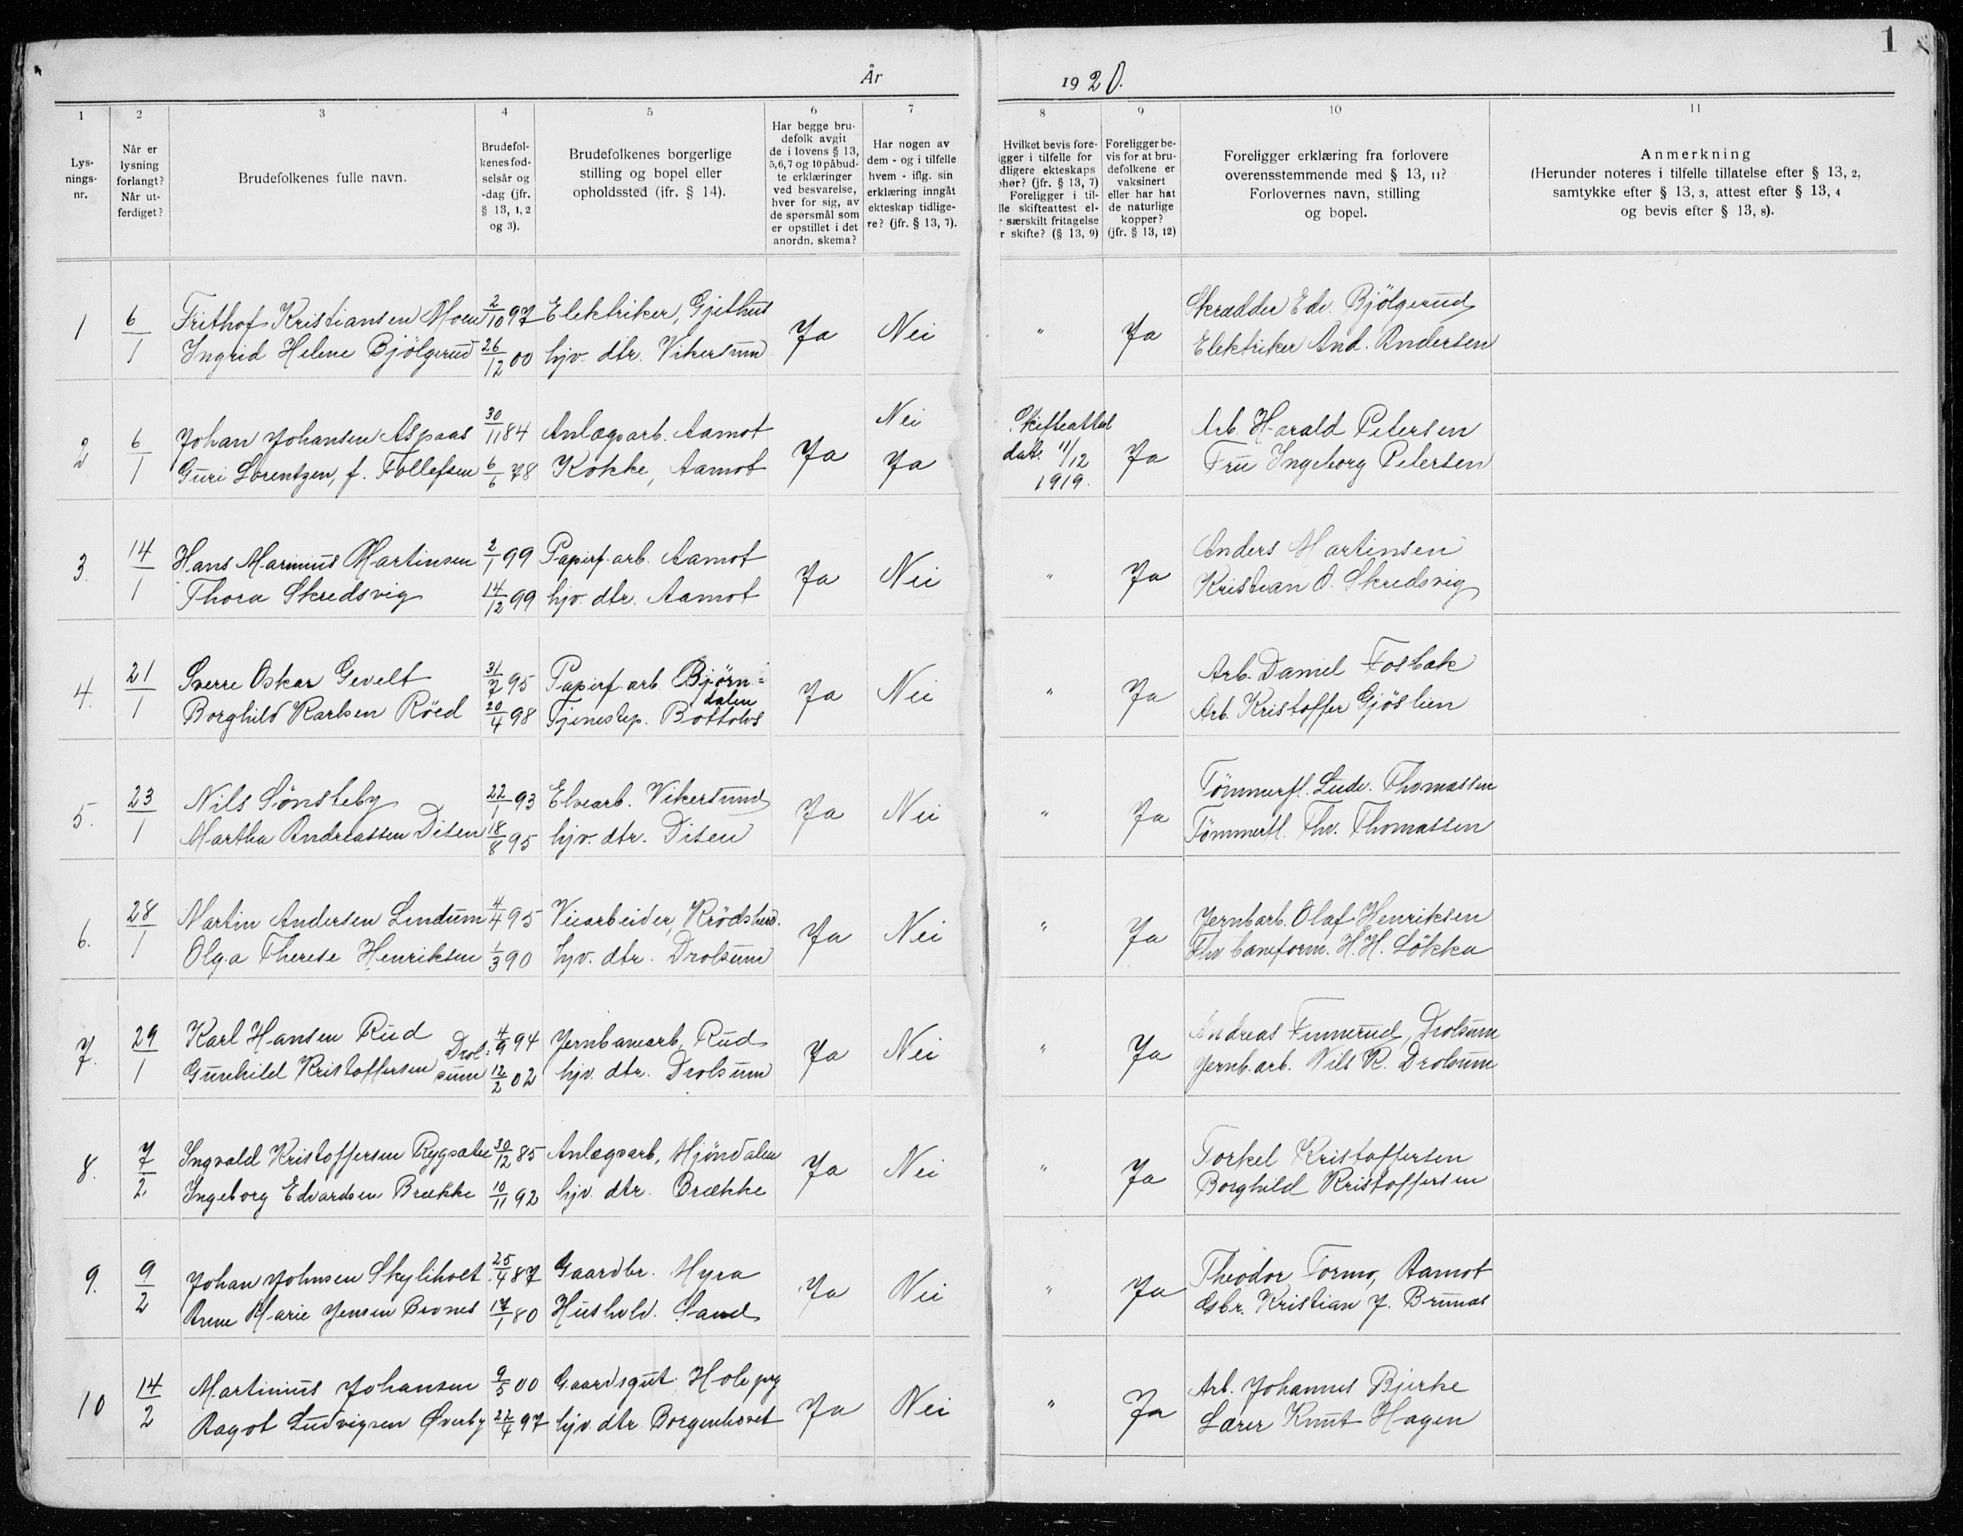 1
År 1920.
1 2 3 4 5 6 7 8 9 10 11
Lys-
nings-
nr.
Når er
lysning
forlangt?
Når ut-
ferdiget?
Brudefolkenes fulle navn.
Brudefol-
kenes fød-
selsår og
-dag (jfr.
§ 13, 1, 2
og 3).
Brudefolkenes borgerlige
stilling og bopel eller
opholdssted (ifr. § 14).
Har begge bru-
defolk avgit
de i lovens § 13,
5,6,7 og 10 påbud-
te erklæringer
ved besvarelse,
hver for sig, av
de spørsmål som
er opstillet i det
anordn. skema?
Har nogen av
dem - og i tilfelle
hvem - iflg. sin
erklæring inngåt
ekteskap tidlige-
re? (jfr. § 13, 7).
Hvilket bevis fore-
igger i tilfelle for
dligere ekteskaps
phør? (jfr. § 13, 7)
Foreligger i til-
lle skifteattest el-
r særskilt fritagelse
r skifte? (§ 13, 9)
Foreligger be-
vis for at bru-
defolkene er
vaksinert
eller har hat
de naturlige
kopper?
(jfr. § 13, 12)
Foreligger erklæring fra forlovere
overensstemmende med § 13, 11?
Forlovernes navn, stilling
og bopel.
Anmerkning
(Herunder noteres i tilfelle tillatelse efter § 13, 2,
samtykke efter § 13, 3, attest efter § 13, 4
og bevis efter § 13, 8).
1 6/1 Frithof Kristiansen Moen 2/10 97 Elektriker, Gjethus Ja Nei " Ja Skrædder Edv. Bjölgerud
Ingrid Helene Bjölgerud 26/12 00 hjv. dtr. Vikersund Elektriker And. Andersen
2 6/1 Johan Johansen Aspaas 30/11 84 Anlægsarb. Aamot Ja Nei Skifteattest Ja Arb. Harald Petersen
Guri Lorentzen, f. Tollefsen 6/6 78 Kokke, Aamot Ja dat. 11/12 Fru Ingeborg Petersen
1919.
3. 14/1 Hans Marinius Martinsen 2/1 99 Papirf.arb. Aamot Ja Nei " Ja Anders Martinsen
Thora Skredsvig 14/12 99 hjv. dtr. Aamot Kristian O. Skredsvig
4. 21/1 Sverre Oskar Gevelt 31/7 95 Papirf.arb. Björn= Ja Nei " Ja Arb. Daniel Fosbak
dalen
Borghild Karlsen Röed 20/4 98 Tjenestep. Bottolvs Arb. Kristoffer Gjöslien
5. 23/1 Nils Sönsteby 22/1 93 Elvearb. Vikersund Ja Nei " Ja Tömmerfl. Ludv. Thomassen
Martha Andreassen Disen 18/8 95 hjv. dtr. Disen Tömmerfl. Thv. Thomassen
6. 28/1 Martin Andersen Lindum 4/4 95 Veiarbeider, Krödsherd. Ja Nei " Ja Jernb.arb. Olaf Henriksen
Olga Therese Henriksen 1/3 90 hjv. dtr. Drolsum baneform. H.H. Lökka
7. 29/1 Karl Hansen Rud 4/9 94 Jernbanearb, Rud Ja Nei " Ja Andreas Finnerud, Drolsum
Gunhild Kristoffersen Drol=sum 12/2 02 hjv. dtr. Drolsum Jernb.arb. Nils K. Drolsum
8. 7/2 Ingvald Kristoffersen 30/12 85 Anlægsarb, Mjöndalen Ja Nei " Ja Torkel Kristoffersen
Ingeborg Edvardsen Brække 10/11 92 hjv. dtr. Brække Borghild Kristoffersen
9. 9/2 Johan Johnsen 25/4 87 Gaardbr. Myra Ja Nei " Ja Theodor Formo, Aamot
Anne Marie Jensen 17/1 80 Hushold. Sand Gbr. Kristian J.
10 14/2 Martinius Johansen 9/5 00 Gaardsgut Hole pg Ja Nei " Ja Arb. Johannes Bjerke
Ragot Ludvigsen Øverby 22/4 97 hjv. dtr. Borgenhovet Lærer Knut Hagen